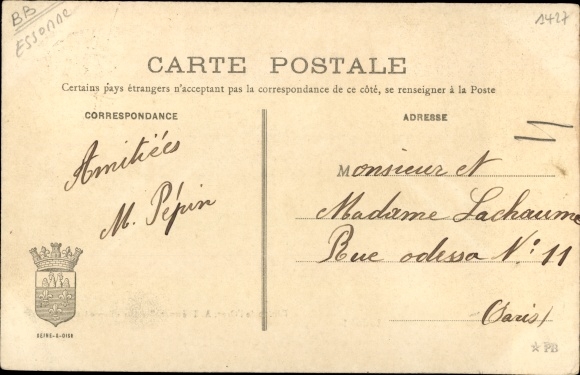 BB
ESSONNE
1427
CARTE POSTALE
Certains pays étrangers n'acceptant pas la correspondance de ce côté, se renseigner à la Poste
CORRESPONDANCE
Amitiées
M. Pépin
ADRESSE
Monsieur et
Madame Lachaume
Rue odessa N° 11
(Paris)
SEINE-&-OISE
PB